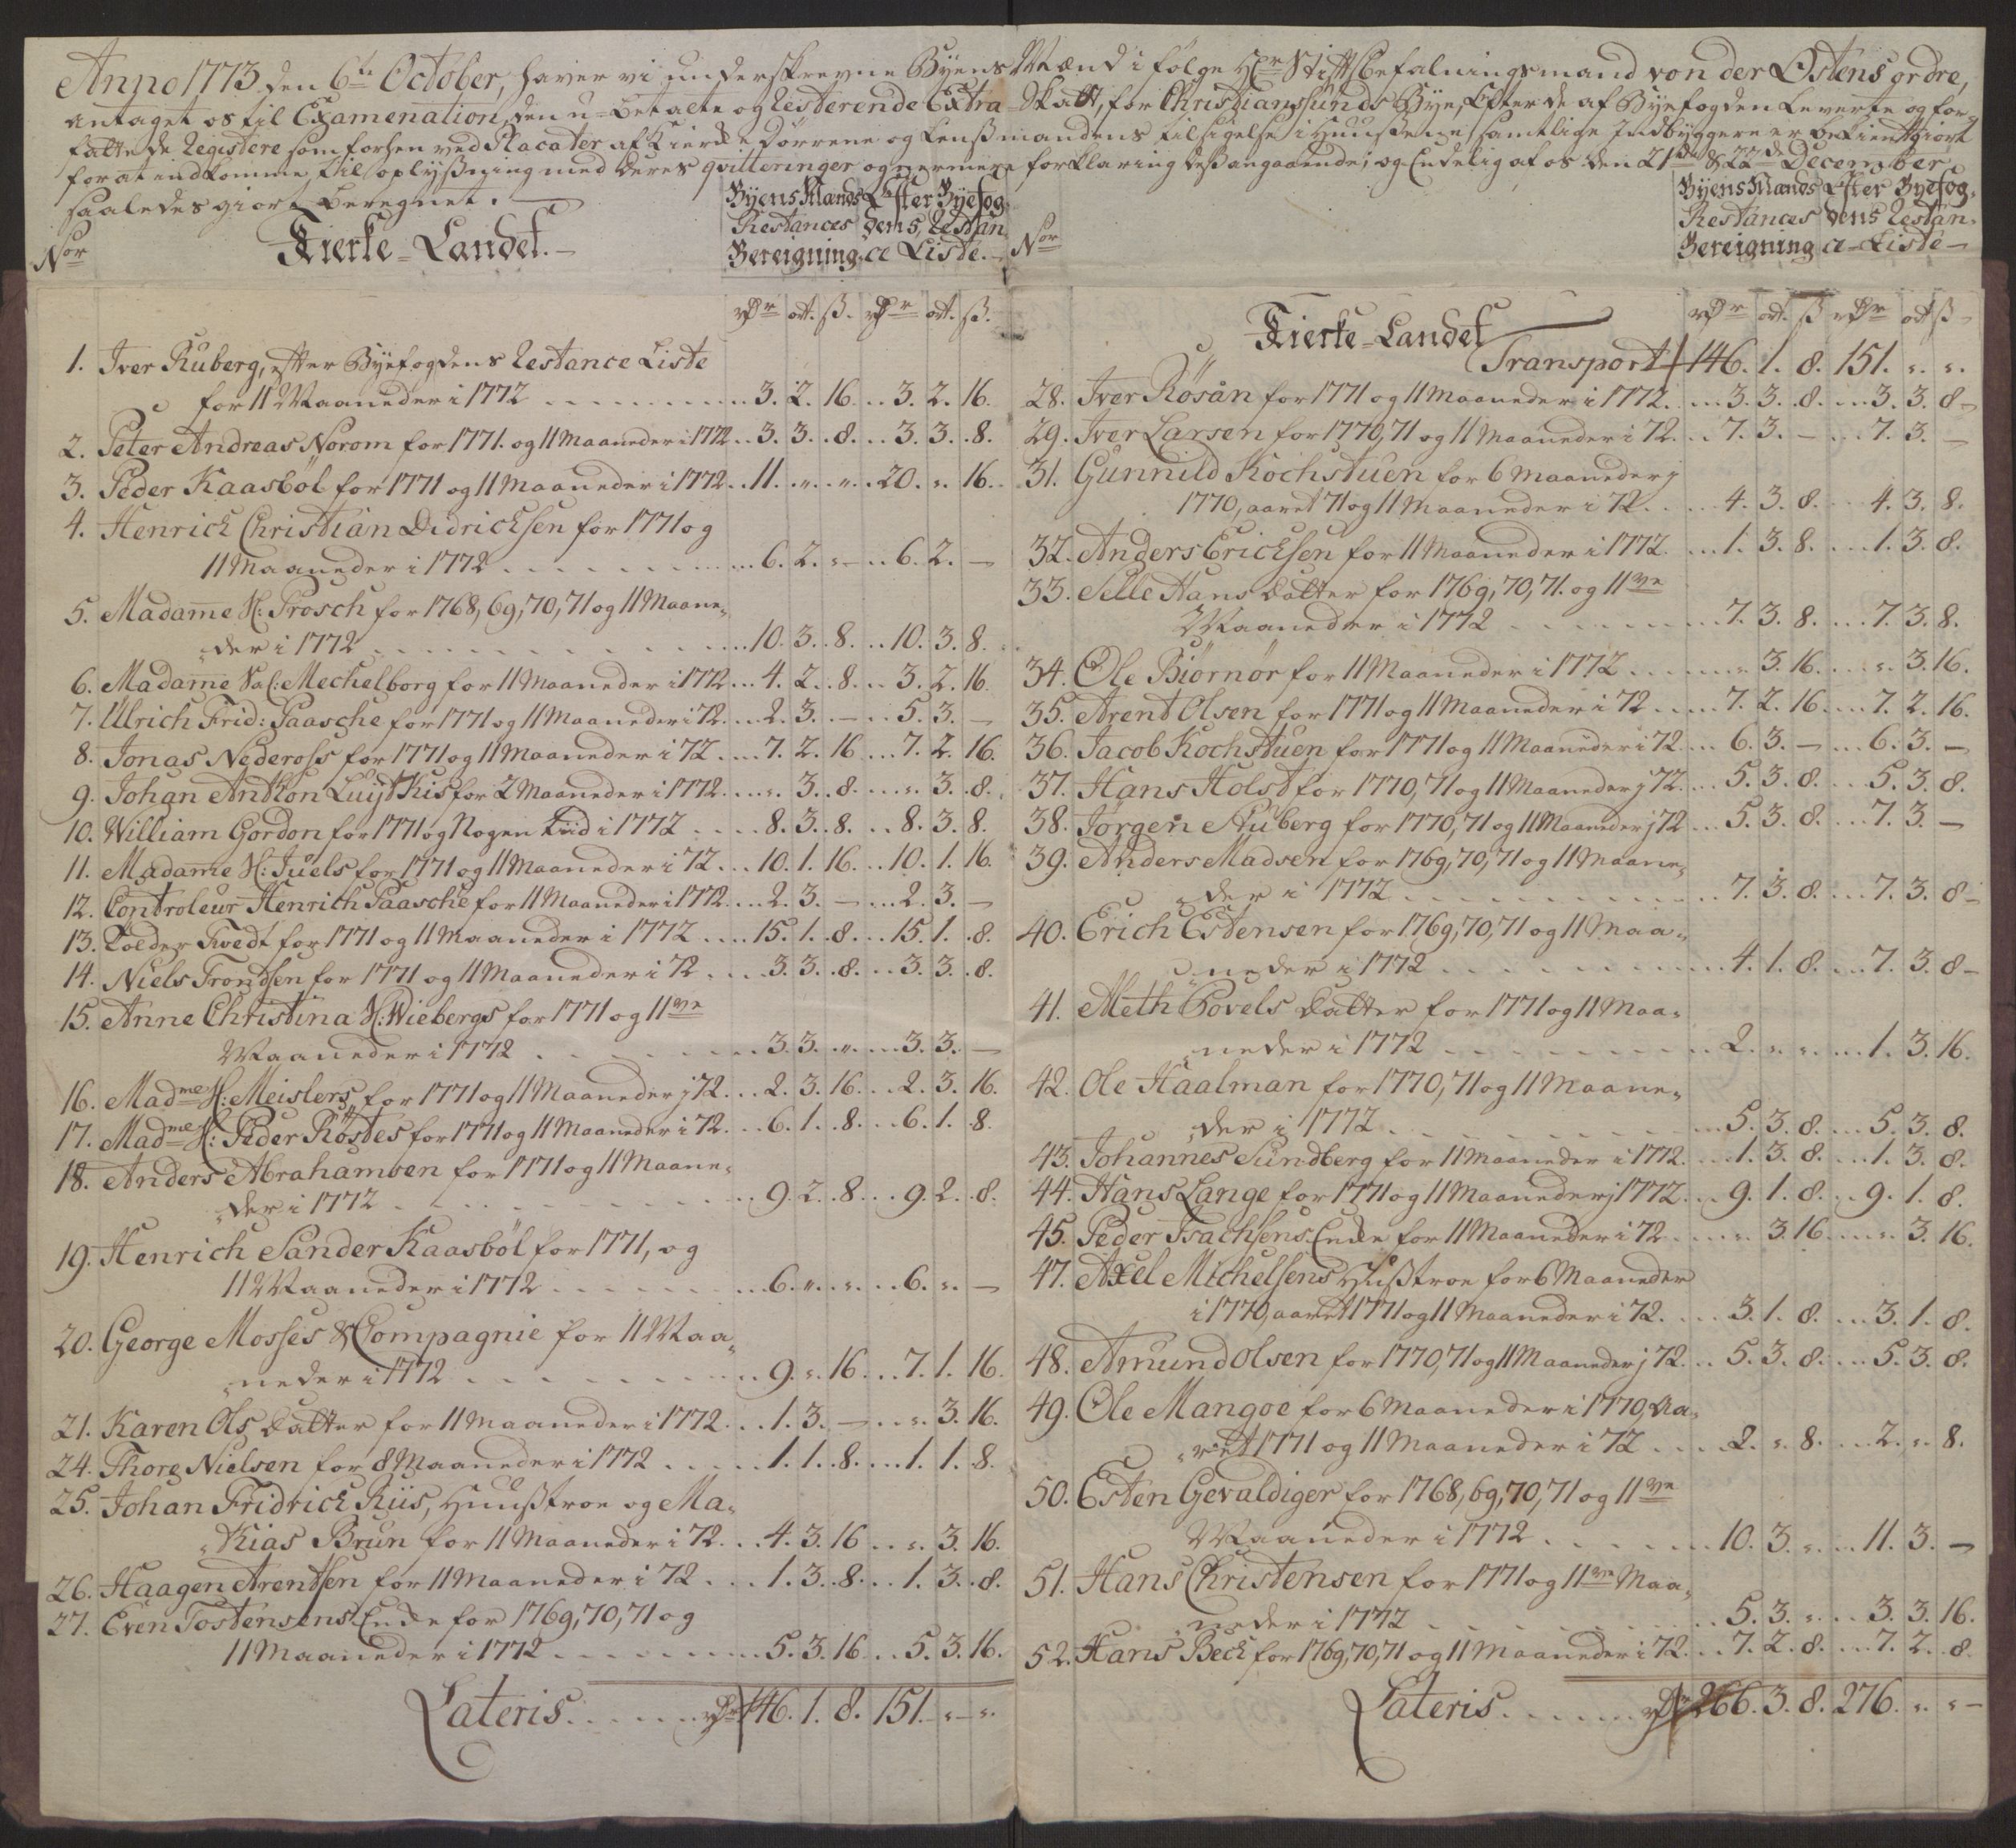 Anno 1773 den 6te October, haver vi underskrevne Byens Mænd i følge Hr Stiftsbefalningsmand von der Østens ordre,
antaget os til Examenation, den u-betalte og resterende Extra Skatt, for Christianssunds Bye, Efter de af Byefogden leverte og for-
fattede Registere som forhen ved Placater af Kierke Dørrene og Lensmandens tilsigelse i Huusene samtlige Indbyggere er bekientgiort
for at indkomme til oplysning med deres qvitteringer og nermere forklaring des angaaende; og Endelig af os den 21de & 22de December
saaledes giort beregnet.
Nor Kierke-Landet.
Byens Mænds Restances Bereigning
Efter Byefogdens Restance Liste.
rdr ort. ß. rdr ort. ß.
1. Iver Ruberg, efter Byefogdens Restance Liste
for 11 Maaneder i 1772 3. 2. 16. 3. 2. 16.
2. Peter Andreas Norom for 1771. og 11 Maaneder i 1772 3. 3. 8. 3. 3. 8.
3. Peder Kaasböl for 1771 og 11 Maaneder i 1772 11. " " 20. " 16.
4. Henrick Christian Didricksen for 1771 og
11 Maaneder i 1772 6. 2. " 6. 2. —
5. Madame Sl: Prosch for 1768, 69, 70, 71 og 11 Maane-
der i 1772 10. 3. 8. 10. 3. 8.
6. Madame Sal: Mechelborg for 11 Maaneder i 1772 4. 2. 8. 3. 2. 16.
7. Ulrich Frid: Paasche for 1771 og 11 Maaneder i 72. 2. 3. — 5. 3. —
8. Jonas Nedeross for 1771 og 11 Maaneder i 72 7. 2. 16 7. 2. 16.
9. Johan Anthon Luytkis for 2 Maaneder i 1772 " 3. 8. " 3. 8.
10. William Gordon for 1771 og Nogen Tiid i 1772 8. 3. 8. 8. 3. 8.
11. Madame Sl: Juels for 1771 og 11 Maaneder i 72 10. 1. 16. 10. 1. 16.
12. Controleur Henrich Paasche for 11 Maaneder i 1772 2. 3. — 2. 3. —
13. Tolder Tvedt for 1771 og 11 Maaneder i 1772 15. 1. 8. 15. 1. 8.
14. Niels Trondsen for 1771 og 11 Maaneder i 72 3. 3. 8. 3. 3. 8.
15. Anne Christina Sl: Wiebergs for 1771 og 11ve
Maaneder i 1772 3. 3. " 3. 3. —
16. Madme Sl: Meislers for 1771 og 11 Maaneder i 72 2. 3. 16. 2. 3. 16.
17. Madme Sl: Peder Röstes for 1771 og 11 Maaneder i 72. 6. 1. 8. 6. 1. 8.
18. Anders Abrahamsen for 1771 og 11 Maane-
der i 1772 9. 2. 8. 9. 2. 8.
19. Henrich Sander Kaasböl for 1771, og
11 Maaneder i 1772 6. " " 6. " —
20. George Mosses & Compagnie for 11 Maa-
neder i 1772 9. " 16. 7. 1. 16.
21. Karen Ols datter for 11 Maaneder i 1772. 1. 3. — " 3. 16.
24. Thore Nielsen for 8 Maaneder i 1772 1. 1. 8. 1. 1. 8.
25. Johan Fridrick Riis, Huustroe og Ma-
thias Brun for 11 Maaneder i 72. 4. 3. 16 " 3. 16.
26. Haagen Arentsen for 11 Maaneder i 72 1. 3. 8. 1. 3. 8.
27. Even Tostensens Encke for 1769, 70, 71 og
11 Maaneder i 1772 5. 3. 16. 5. 3. 16.
Lateris. rdr 146. 1. 8. 151. " "
Nor
Byens Mænds Restances Bereigning
Efter Byefogdens Restance-Liste
Kierke-Landet
rdr ort. ß rdr ort ß
Transport 146. 1. 8. 151. " "
28. Iver Rösån for 1771 og 11 Maaneder i 1772. 3. 3. 8. 3. 3. 8
29. Iver Larsen for 1770, 71 og 11 Maaneder i 72. 7. 3. — 7. 3. —
31. Gunnild Kochstuen for 6 Maaneder j
1770, aaret 71 og 11 Maaneder i 72. 4. 3. 8. 4. 3. 8.
32. Anders Ericksen for 11 Maaneder i 1772. 1. 3. 8. 1. 3. 8.
33. Selle Hans datter for 1769, 70, 71. og 11ve
Maaneder i 1772 7. 3. 8. 7. 3. 8.
34. Ole Biörnör for 11 Maaneder i 1772 " 3. 16. " 3. 16.
35. Arent Olsen for 1771 og 11 Maaneder i 72 7. 2. 16. 7. 2. 16.
36. Jacob Kochstuen for 1771 og 11 Maaneder i 72. 6. 3. — 6. 3. —
37. Hans Holst for 1770, 71 og 11 Maaneder j 72. 5. 3. 8. 5. 3. 8.
38. Jörgen Ruberg for 1770, 71 og 11 Maaneder j 72 5. 3. 8. 7. 3. —
39. Anders Madsen for 1769, 70, 71 og 11 Maane-
der i 1772 7. 3. 8. 7. 3. 8
40. Erich Estensen for 1769, 70, 71 og 11 Maa-
neder i 1772 4. 1. 8. 7. 3. 8
41. Meth Povels datter for 1771 og 11 Maa-
neder i 1772 2. " " 1. 3. 16.
42. Ole Haalman for 1770, 71 og 11 Maane-
der i 1772 5. 3. 8. 5. 3. 8.
43. Johannes Sundberg for 11 Maaneder i 1772. 1. 3. 8. 1. 3. 8.
44. Hans Lange for 1771 og 11 Maaneder j 1772. 9. 1. 8. 9. 1. 8.
45. Peder Isachsens Encke for 11 Maaneder i 72 " 3. 16. " 3. 16.
47. Axel Michelsens Hustroe for 6 Maaneder
i 1770, aaret 1771 og 11 Maaneder i 72. 3. 1. 8. 3. 1. 8.
48. Amund Olsen for 1770, 71 og 11 Maaneder j 72. 5. 3. 8. 5. 3. 8.
49. Ole Mangoe for 6 Maaneder i 1770, Aa-
ret 1771 og 11 Maaneder i 72 2. " 8. 2. " 8.
50. Esten Gevaldiger for 1768, 69, 70, 71 og 11ve
Maaneder i 1772 10. 3. " 11. 3. —
51. Hans Christensen for 1771 og 11ve Maa-
neder i 1772 5. 3. " 3. 3. 16.
52. Hans Beck for 1769, 70, 71 og 11 Maaneder i 72. 7. 2. 8. 7. 2. 8
Lateris. rdr 266. 3. 8. 276. " "